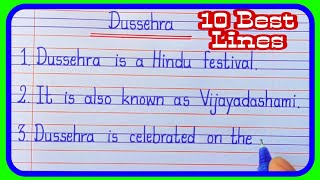 Dussehra
10 Best
Lines
1. Dussehra is a Hindu festival.
2. It is also known as Vijayadashami.
3. Dussehra is celebrated on the